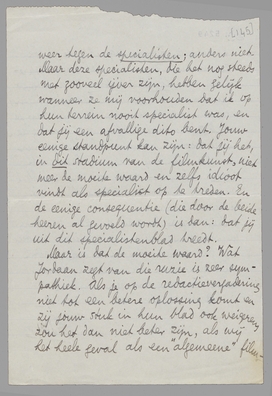 [145]
weer tegen de specialisten; anders niet.
Maar deze specialisten, die het nog steeds
met zooveel ijver zijn, hebben gelijk
wanneer ze mij voorhouden dat ik op
hun terrein nooit specialist was, en
dat jij een afvallige dito bent. Jouw
eenige standpunt kan zijn: dat jij het,
in dit stadium van de filmkunst, niet
meer de moeite waard en zelfs idioot
vindt als specialist op te treden. En
de eenige consequentie (die door de beide
heeren al gevoeld wordt) is dan: dat jij
uit dit specialistenblad treedt.
Maar is dat de moeite waard? Wat
Jordaan zegt van die ruzie is zeer sym-
pathiek. Als je op de redactievergadering
niet tot een betere oplossing komt en
zij jouw stuk in hun blad ook weigeren,
zou het dan niet beter zijn, als wij
het heele geval als een "algemeene" film-